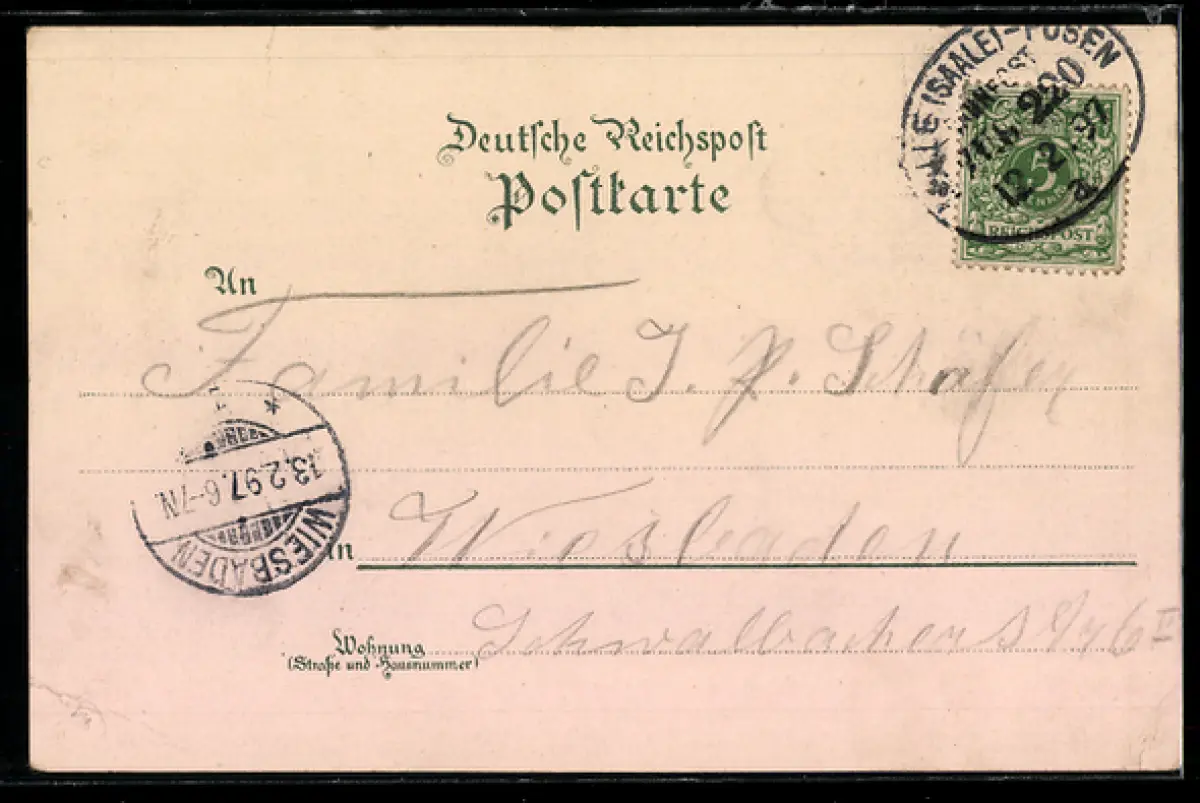 Deutsche Reichspost
Postkarte
HALLE (SAALE)-POSEN
BAHNPOST
ZUG 220
12 2 97
a
5
PFENNIG
REICHSPOST
An
Familie J. P. Schäfer
13.2.97. 6-7N.
WIESBADEN
in Wiesbaden
Wohnung
(Straße und Hausnummer)
Schwalbacherst 6 II